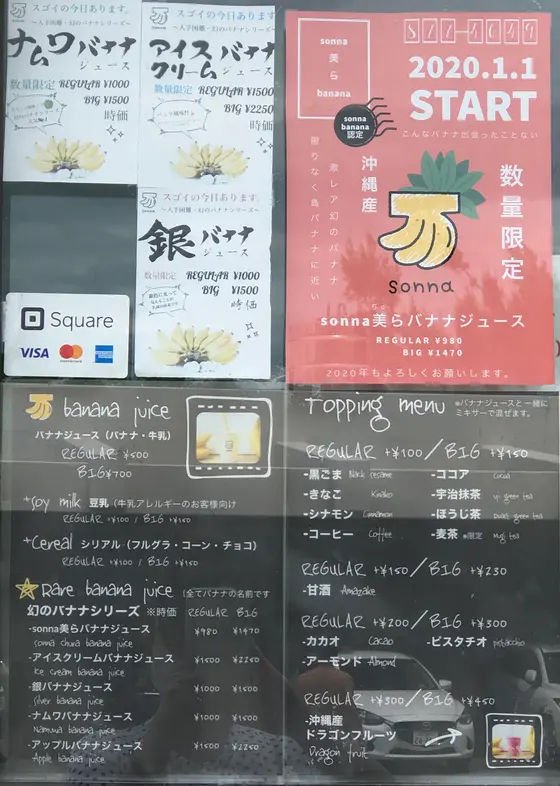 スゴイの今日あります。
〜入手困難・幻のバナナシリーズ〜
ナムワバナナ
ジュース
数量限定 REGULAR ¥1000
BIG ¥1500
時価
スゴイの今日あります。
〜入手困難・幻のバナナシリーズ〜
アイス
クリーム バナナ
ジュース
数量限定 REGULAR ¥1500
BIG ¥2250
時価
スゴイの今日あります。
〜入手困難・幻のバナナシリーズ〜
銀バナナ
ジュース
数量限定 REGULAR ¥1000
BIG ¥1500
時価
Square
VISA mastercard AMERICAN EXPRESS
sonna
美
ら
banana
2020.1.1
START
こんなバナナ出会ったことない
sonna
banana
認定
数量限定
沖縄産
激レア幻のバナナ
限りなく島バナナに近い
sonna
sonna美らバナナジュース
REGULAR ¥980
BIG ¥1470
2020年もよろしくお願いします。
banana juice
バナナジュース（バナナ・牛乳）
REGULAR ¥500
BIG ¥700
+Soy milk 豆乳（牛乳アレルギーのお客様向け
REGULAR +¥100 / BIG +¥150
+Cereal シリアル（フルグラ・コーン・チョコ）
REGULAR +¥100 / BIG +¥150
Rare banana juice （全てバナナの名前です
幻のバナナシリーズ ※時価 REGULAR BIG
-sonna美らバナナジュース ¥980 ¥1470
sonna chura banana juice
-アイスクリームバナナジュース ¥1500 ¥2250
Ice cream banana juice
-銀バナナジュース ¥1000 ¥1500
Silver banana juice
-ナムワバナナジュース ¥1000 ¥1500
Namuwa banana juice
-アップルバナナジュース ¥1500 ¥2250
Apple banana juice
Topping menu ※バナナジュースと一緒に
ミキサーで混ぜます。
REGULAR +¥100 / BIG +¥150
-黒ごま Black sesame -ココア Cocoa
-きなこ Kinako -宇治抹茶 uji green tea
-シナモン Cinnamon -ほうじ茶 Roast green tea
-コーヒー Coffee -麦茶 ※限定 Mugi tea
REGULAR +¥150 / BIG +¥230
-甘酒 Amazake
REGULAR +¥200 / BIG +¥300
-カカオ Cacao -ピスタチオ pistacchio
-アーモンド Almond
REGULAR +¥300 / BIG +¥450
-沖縄産
ドラゴンフルーツ
Dragon fruit